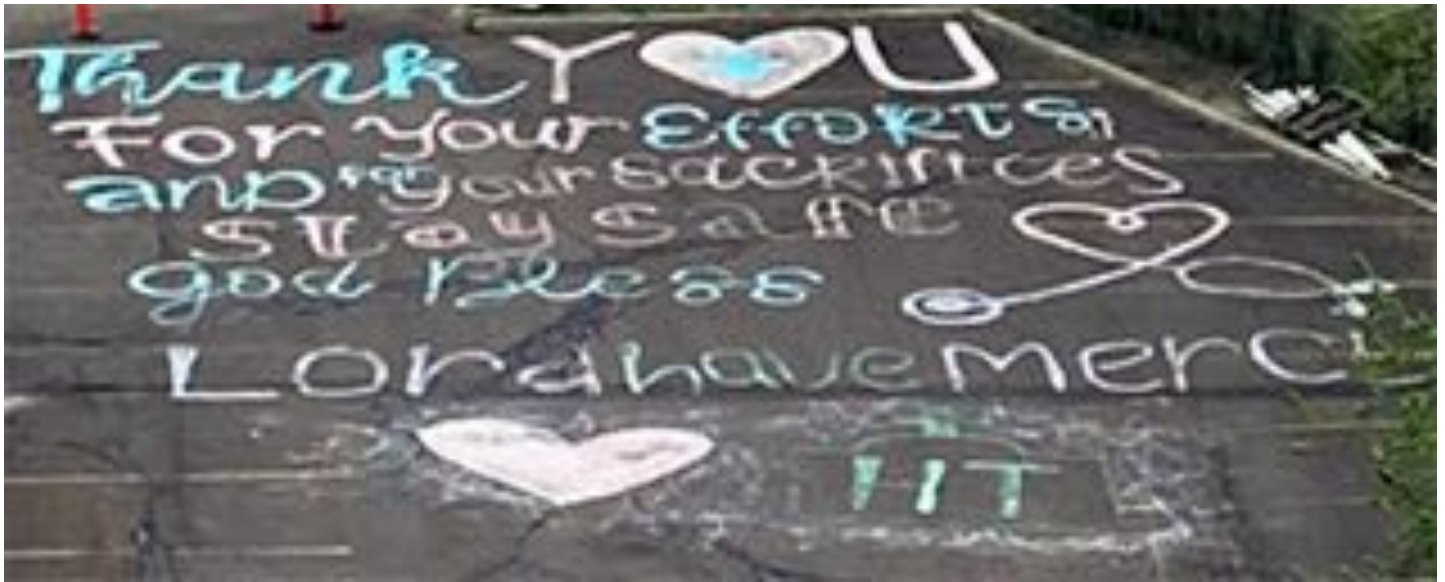 Thank YOU
For your EffoRts,
anD for your sacRifices
Stay Safe
god Bless
Lord have merc